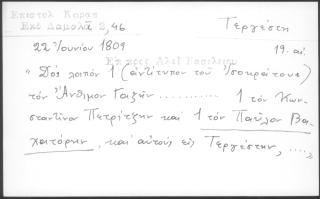 Επιστολ Κοραη
Εκδ Δαμαλᾶ 2, 46
Τεργέστη
22 Ἰουνίου 1809
19. αἰ.
Ἐπ πρὸς Ἀλεξ Βασιλείου
"Δὸς λοιπὸν 1 (ἀντίτυπον τοῦ Ἰσοκράτους)
τὸν Ἄνθιμον Γαζῆν ............ 1 τὸν Κων-
σταντῖνο Πετρίτζην καὶ 1 τὸν Παῦλον Βα-
χατόρην, καὶ αὐτοὺς εἰς Τεργέστην, ....»